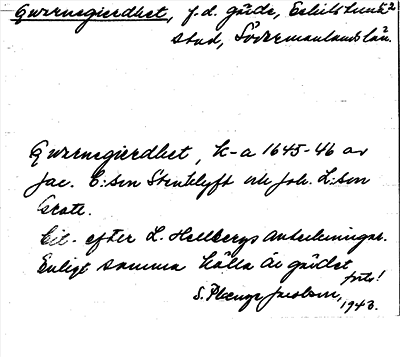 Qwarnegierdhet, f.d. gärde, Eskilstuna
stad, Södermanlands län.
Qwarnegierdhet, k-a 1645-46 av
Jac. E:son Stenklyft och Joh. L:son
Grote.
Cit. efter L. Hellbergs anteckningar.
Enligt samma källa är gärdet
forts!
S. Jacobson,
1943.